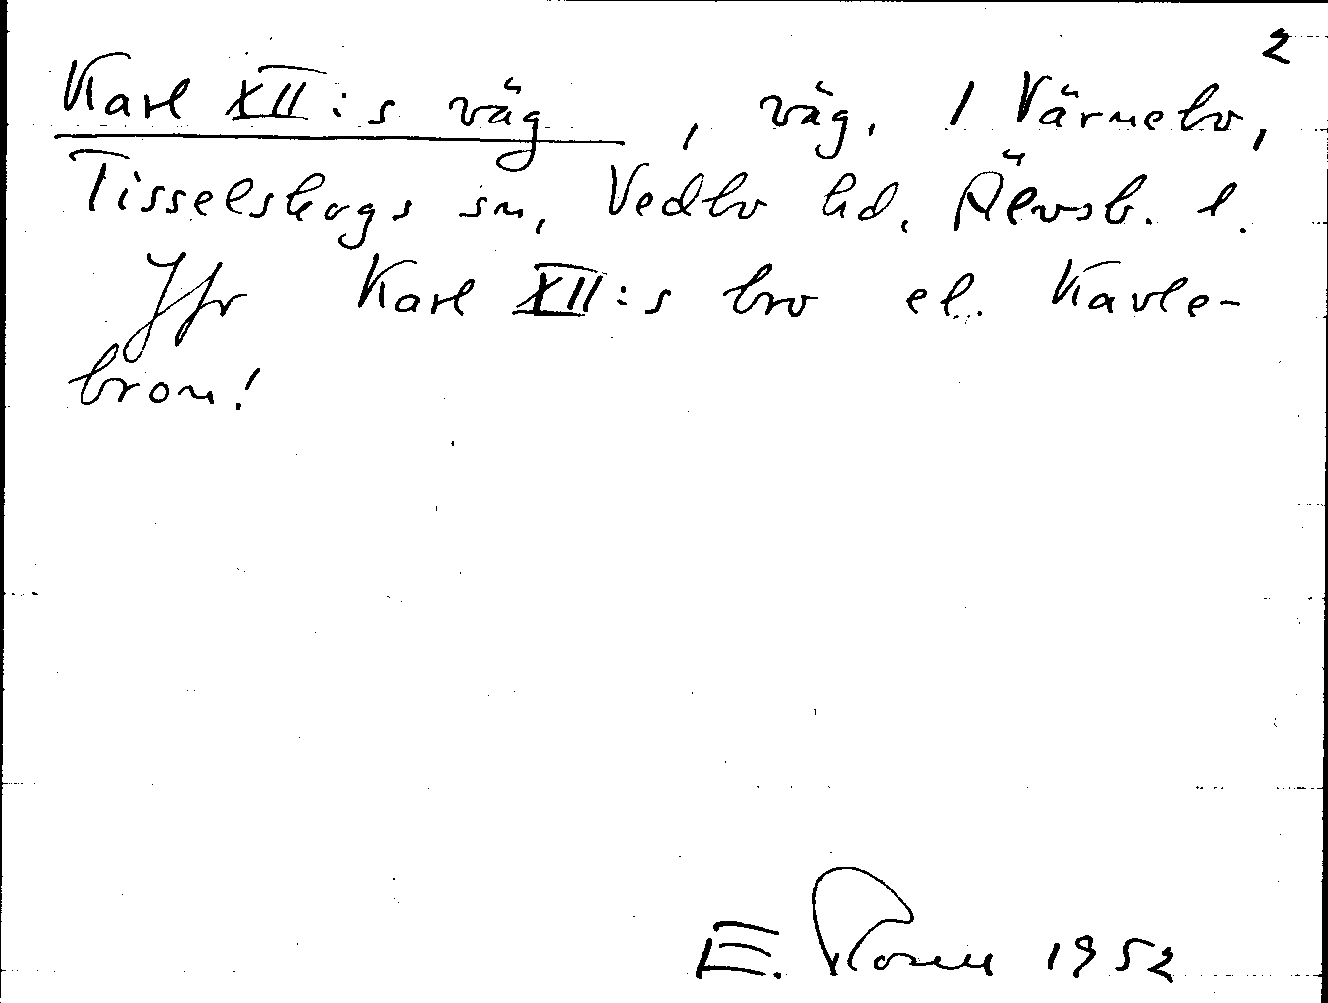 2
Karl XII:s väg, väg. I Värmebo,
Tisselskogs sn, Vedbo hd. Älvsb. l.
Jfr Karl XII:s bro el. Karle-
bron!
E. Rosell 1952